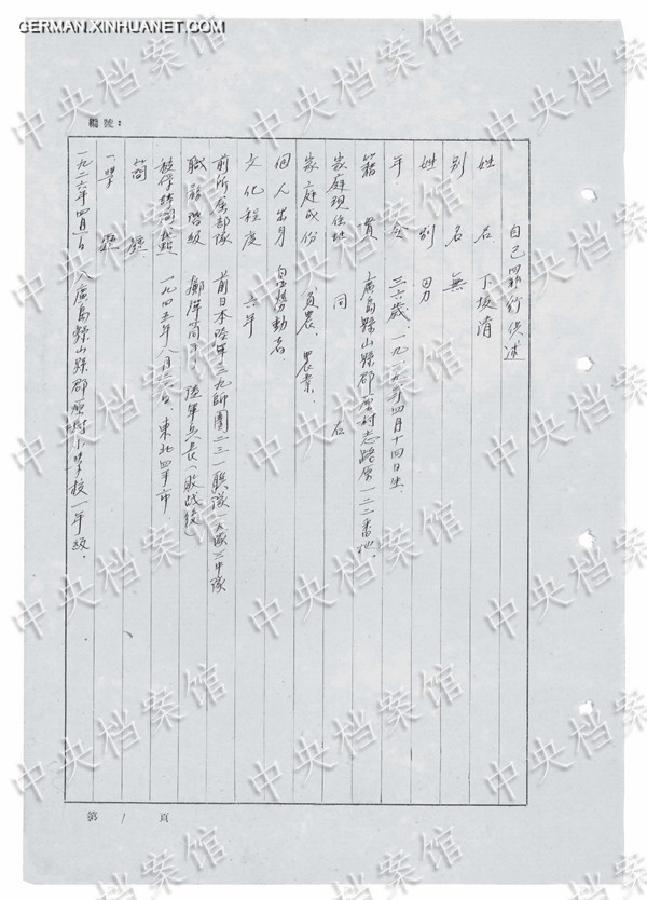 GERMAN.XINHUANET.COM
中央档案馆
編號：
自己罪行供述
姓 名 下坂清
別 名 無
性別 男
年 令 三六歲、一九一九年四月十四日生.
籍 貫 廣島縣山縣郡原村志路原一二二番地.
家庭現住址 同 右
家庭成份 貧農、農業.
個人出身 勞動者.
文化程度 六年
前所屬部隊 前日本陸軍三九師團二三一聯隊一大隊三中隊
職務階級 陸軍兵長
一九四五年八月 日、東北四平市
簡 歷
一、學 歷
一九二六年四月一日 入廣島縣山縣郡原村小學校一年級.
第 1 頁